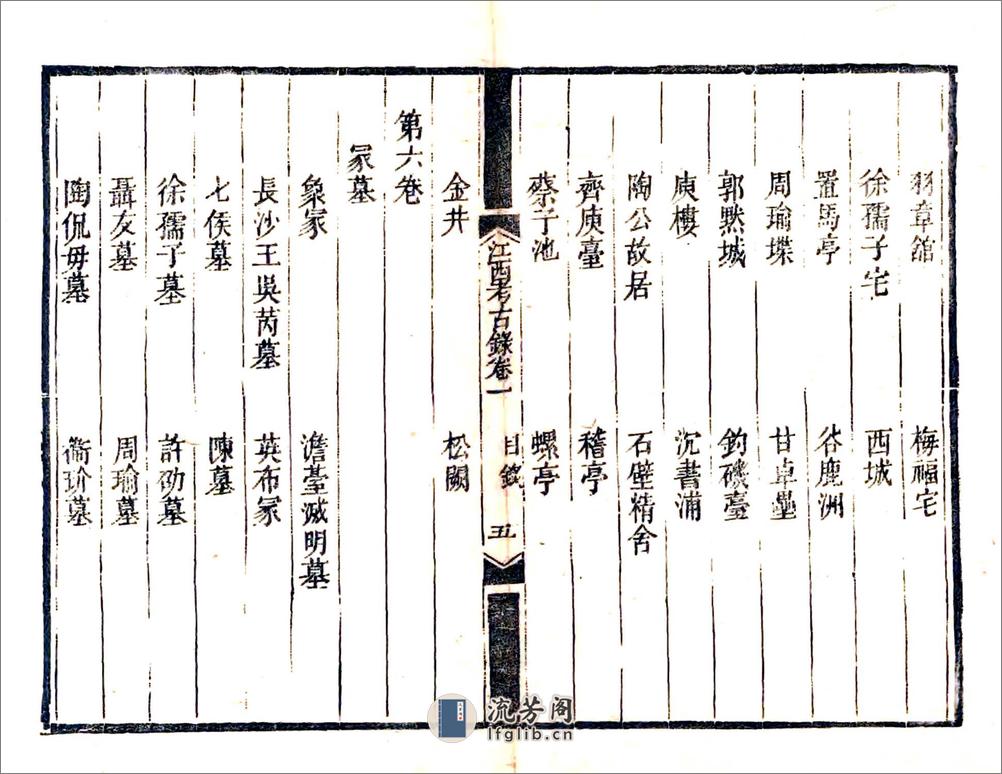 豫章舘　梅福宅
徐孺子宅　西城
置馬亭　谷鹿洲
周瑜堞　甘卓壘
郭黙城　釣磯臺
庾樓　沉書浦
陶公故居　石壁精舍
齊庾臺　稽亭
蔡子池　螺亭
江西考古錄卷一　目錄　五
金井　松闕
第六卷
冢墓
象冢　澹臺滅明墓
長沙王吳芮墓　英布冢
七侯墓　陳墓
徐孺子墓　許劭墓
聶友墓　周瑜墓
陶侃母墓　衞玠墓
流芳阁
lfglib.cn